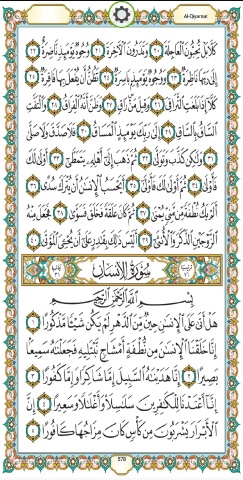 Al-Qiyamat
كَلَّا بَلْ تُحِبُّونَ الْعَاجِلَةَ ٢٠ وَتَذَرُونَ الْآخِرَةَ ٢١ وُجُوهٌ يَوْمَئِذٍ نَّاضِرَةٌ ٢٢
إِلَىٰ رَبِّهَا نَاظِرَةٌ ٢٣ وَوُجُوهٌ يَوْمَئِذٍ بَاسِرَةٌ ٢٤ تَظُنُّ أَن يُفْعَلَ بِهَا فَاقِرَةٌ ٢٥
كَلَّا إِذَا بَلَغَتِ التَّرَاقِيَ ٢٦ وَقِيلَ مَنْ رَاقٍ ٢٧ وَظَنَّ أَنَّهُ الْفِرَاقُ ٢٨ وَالْتَفَّتِ
السَّاقُ بِالسَّاقِ ٢٩ إِلَىٰ رَبِّكَ يَوْمَئِذٍ الْمَسَاقُ ٣٠ فَلَا صَدَّقَ وَلَا صَلَّىٰ
٣١ وَلَٰكِن كَذَّبَ وَتَوَلَّىٰ ٣٢ ثُمَّ ذَهَبَ إِلَىٰ أَهْلِهِ يَتَمَطَّىٰ ٣٣ أَوْلَىٰ لَكَ
فَأَوْلَىٰ ٣٤ ثُمَّ أَوْلَىٰ لَكَ فَأَوْلَىٰ ٣٥ أَيَحْسَبُ الْإِنسَانُ أَن يُتْرَكَ سُدًى ٣٦
أَلَمْ يَكُ نُطْفَةً مِّن مَّنِيٍّ يُمْنَىٰ ٣٧ ثُمَّ كَانَ عَلَقَةً فَخَلَقَ فَسَوَّىٰ ٣٨ فَجَعَلَ مِنْهُ
الزَّوْجَيْنِ الذَّكَرَ وَالْأُنثَىٰ ٣٩ أَلَيْسَ ذَٰلِكَ بِقَادِرٍ عَلَىٰ أَن يُحْيِيَ الْمَوْتَىٰ ٤٠
سُورَةُ الْإِنسَانِ
بِسْمِ اللَّهِ الرَّحْمَٰنِ الرَّحِيمِ
هَلْ أَتَىٰ عَلَى الْإِنسَانِ حِينٌ مِّنَ الدَّهْرِ لَمْ يَكُن شَيْئًا مَّذْكُورًا ١
إِنَّا خَلَقْنَا الْإِنسَانَ مِن نُّطْفَةٍ أَمْشَاجٍ نَّبْتَلِيهِ فَجَعَلْنَاهُ سَمِيعًا
بَصِيرًا ٢ إِنَّا هَدَيْنَاهُ السَّبِيلَ إِمَّا شَاكِرًا وَإِمَّا كَفُورًا ٣
إِنَّا أَعْتَدْنَا لِلْكَافِرِينَ سَلَاسِلَا وَأَغْلَالًا وَسَعِيرًا ٤ إِنَّ
الْأَبْرَارَ يَشْرَبُونَ مِن كَأْسٍ كَانَ مِزَاجُهَا كَافُورًا ٥
578